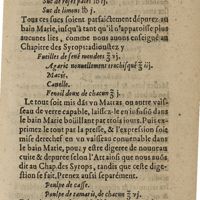 Suc de roses pales lb ij.
Suc de limons lb j.
Tous ces sucs soient parfaictement depurez au
bain Marie, iusqu'à tant qu'il n'apparoisse plus
aucunes lies, comme nous auons enseigné au
Chapitre des Syrops: adioustez y
Fueilles de sené mondees ℥
Agaric nouuellement trochisqué ℥ iij.
Macis,
Canelle,
Fenoil doux de chacun ʒ j.
Le tout soit mis dās vn Matras, ou autre vais-
seau de verre capable, laissez-le en infusion dans
le bain Marie bouillant par trois iours. Puis ex-
primez le tout par la presse, & l'expression soit
mise derechef en vn vaisseau conuenable dans
le bain Marie, pour y estre digeree de nouueau
cuite & depuree selon l'Art, ainsi que nous auōs dit
au Chap. des Syrops, tandis que ceste digestion
se fait, Prenez aussi separement.
Poulpe de casse.
Poulpe de tamaris, de chacun ℥ vj.